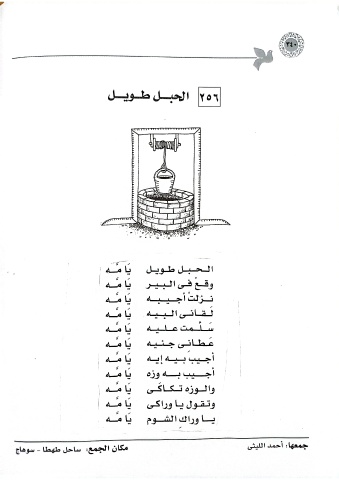 ٢٤٠
٢٥٦ الحبل طويل
الحبل طويل يَا مَّه
وقع فى البير يَا مَّه
نزلت أجيبه يَا مَّه
لقانى البيه يَا مَّه
سَلمت عليه يَا مَّه
عَطانى جنيه يَا مَّه
أجيب بيه إيه يَا مَّه
أجيب به وزه يَا مَّه
والوزه تكاكى يَا مَّه
وتقول يا وراكى يَا مَّه
يا وراك الشوم يَا مَّه
جمعها: أحمد الليثى
مكان الجمع: ساحل طهطا - سوهاج